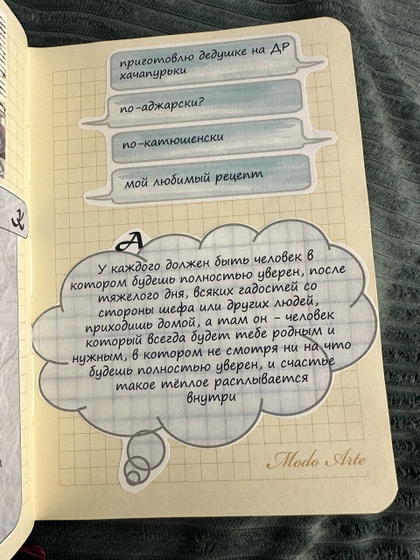 приготовлю дедушке на ДР
хачапурьки
по-аджарски?
по-катюшенски
мой любимый рецепт
А
У каждого должен быть человек в
котором будешь полностью уверен, после
тяжелого дня, всяких гадостей со
стороны шефа или других людей,
приходишь домой, а там он - человек
который всегда будет тебе родным и
нужным, в котором не смотря ни на что
будешь полностью уверен, и счастье
такое тёплое расплывается
внутри
Modo Arte